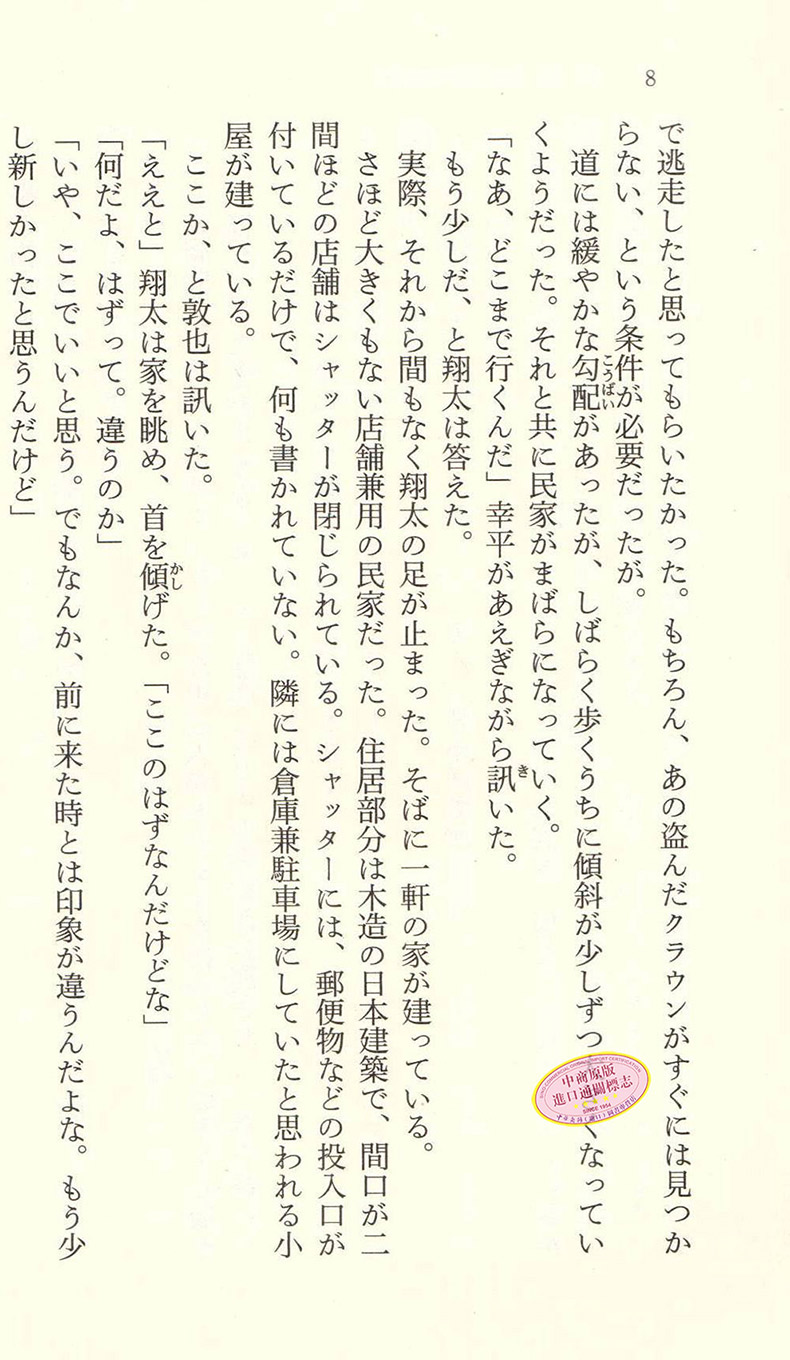 8
で逃走したと思ってもらいたかった。もちろん、あの盗んだクラウンがすぐには見つか
らない、という条件が必要だったが。
道には緩やかな勾配があったが、しばらく歩くうちに傾斜が少しずつ
くなってい
こうばい
くようだった。それと共に民家がまばらになっていく。
「なあ、どこまで行くんだ」幸平があえぎながら訊いた。
き
もう少しだ、と翔太は答えた。
実際、それから間もなく翔太の足が止まった。そばに一軒の家が建っている。
さほど大きくもない店舗兼用の民家だった。住居部分は木造の日本建築で、間口が二
間ほどの店舗はシャッターが閉じられている。シャッターには、郵便物などの投入口が
付いているだけで、何も書かれていない。隣には倉庫兼駐車場にしていたと思われる小
屋が建っている。
ここか、と敦也は訊いた。
「ええと」翔太は家を眺め、首を傾げた。「ここのはずなんだけどな」
かし
「何だよ、はずって。違うのか」
「いや、ここでいいと思う。でもなんか、前に来た時とは印象が違うんだよな。もう少
し新しかったと思うんだけど」
中商原版
進口通關標志
SINCE 1954